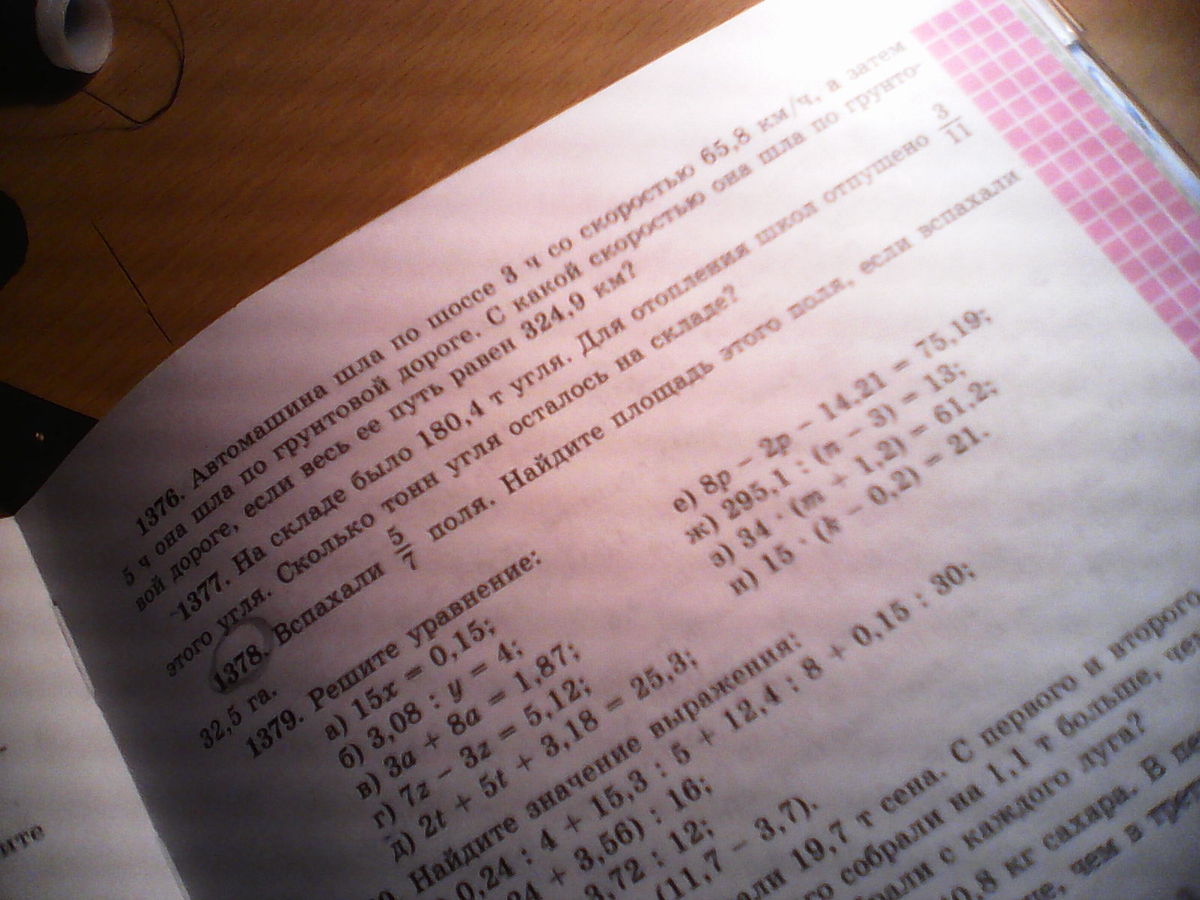 1376. Автомашина шла по шоссе 3 ч со скоростью 65,8 км/ч, а затем
5 ч она шла по грунтовой дороге. С какой скоростью она шла по грунто-
вой дороге, если весь ее путь равен 324,9 км?
1377. На складе было 180,4 т угля. Для отопления школ отпущено 3/11
этого угля. Сколько тонн угля осталось на складе?
1378. Вспахали 5/7 поля. Найдите площадь этого поля, если вспахали
32,5 га.
1379. Решите уравнение:
а) 15x = 0,15;
б) 3,08 : y = 4;
в) 3a + 8a = 1,87;
г) 7z − 3z = 5,12;
д) 2t + 5t + 3,18 = 25,3;
е) 8p − 2p − 14,21 = 75,19;
ж) 295,1 : (n − 3) = 13;
з) 34 · (m + 1,2) = 61,2;
и) 15 · (k − 0,2) = 21.
Найдите значение выражения:
0,24 : 4 + 15,3 : 5 + 12,4 : 8 + 0,15 : 30;
24 + 3,56) : 16;
3,72 : 12;
(11,7 − 3,7).
19,7 т сена. С первого и второго
собрали на 1,1 т больше, че
с каждого луга?
0,8 кг сахара. В
чем в
ите